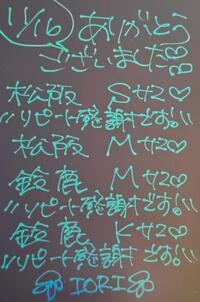 11/16 ありがとう
ございました♡♡
松阪 Sサマ♡
〃リピート感謝です!!
松阪 Mサマ♡
鈴鹿 Mサマ♡
〃リピート感謝です!!
鈴鹿 Kサマ♡
〃リピート感謝です!!
IORI